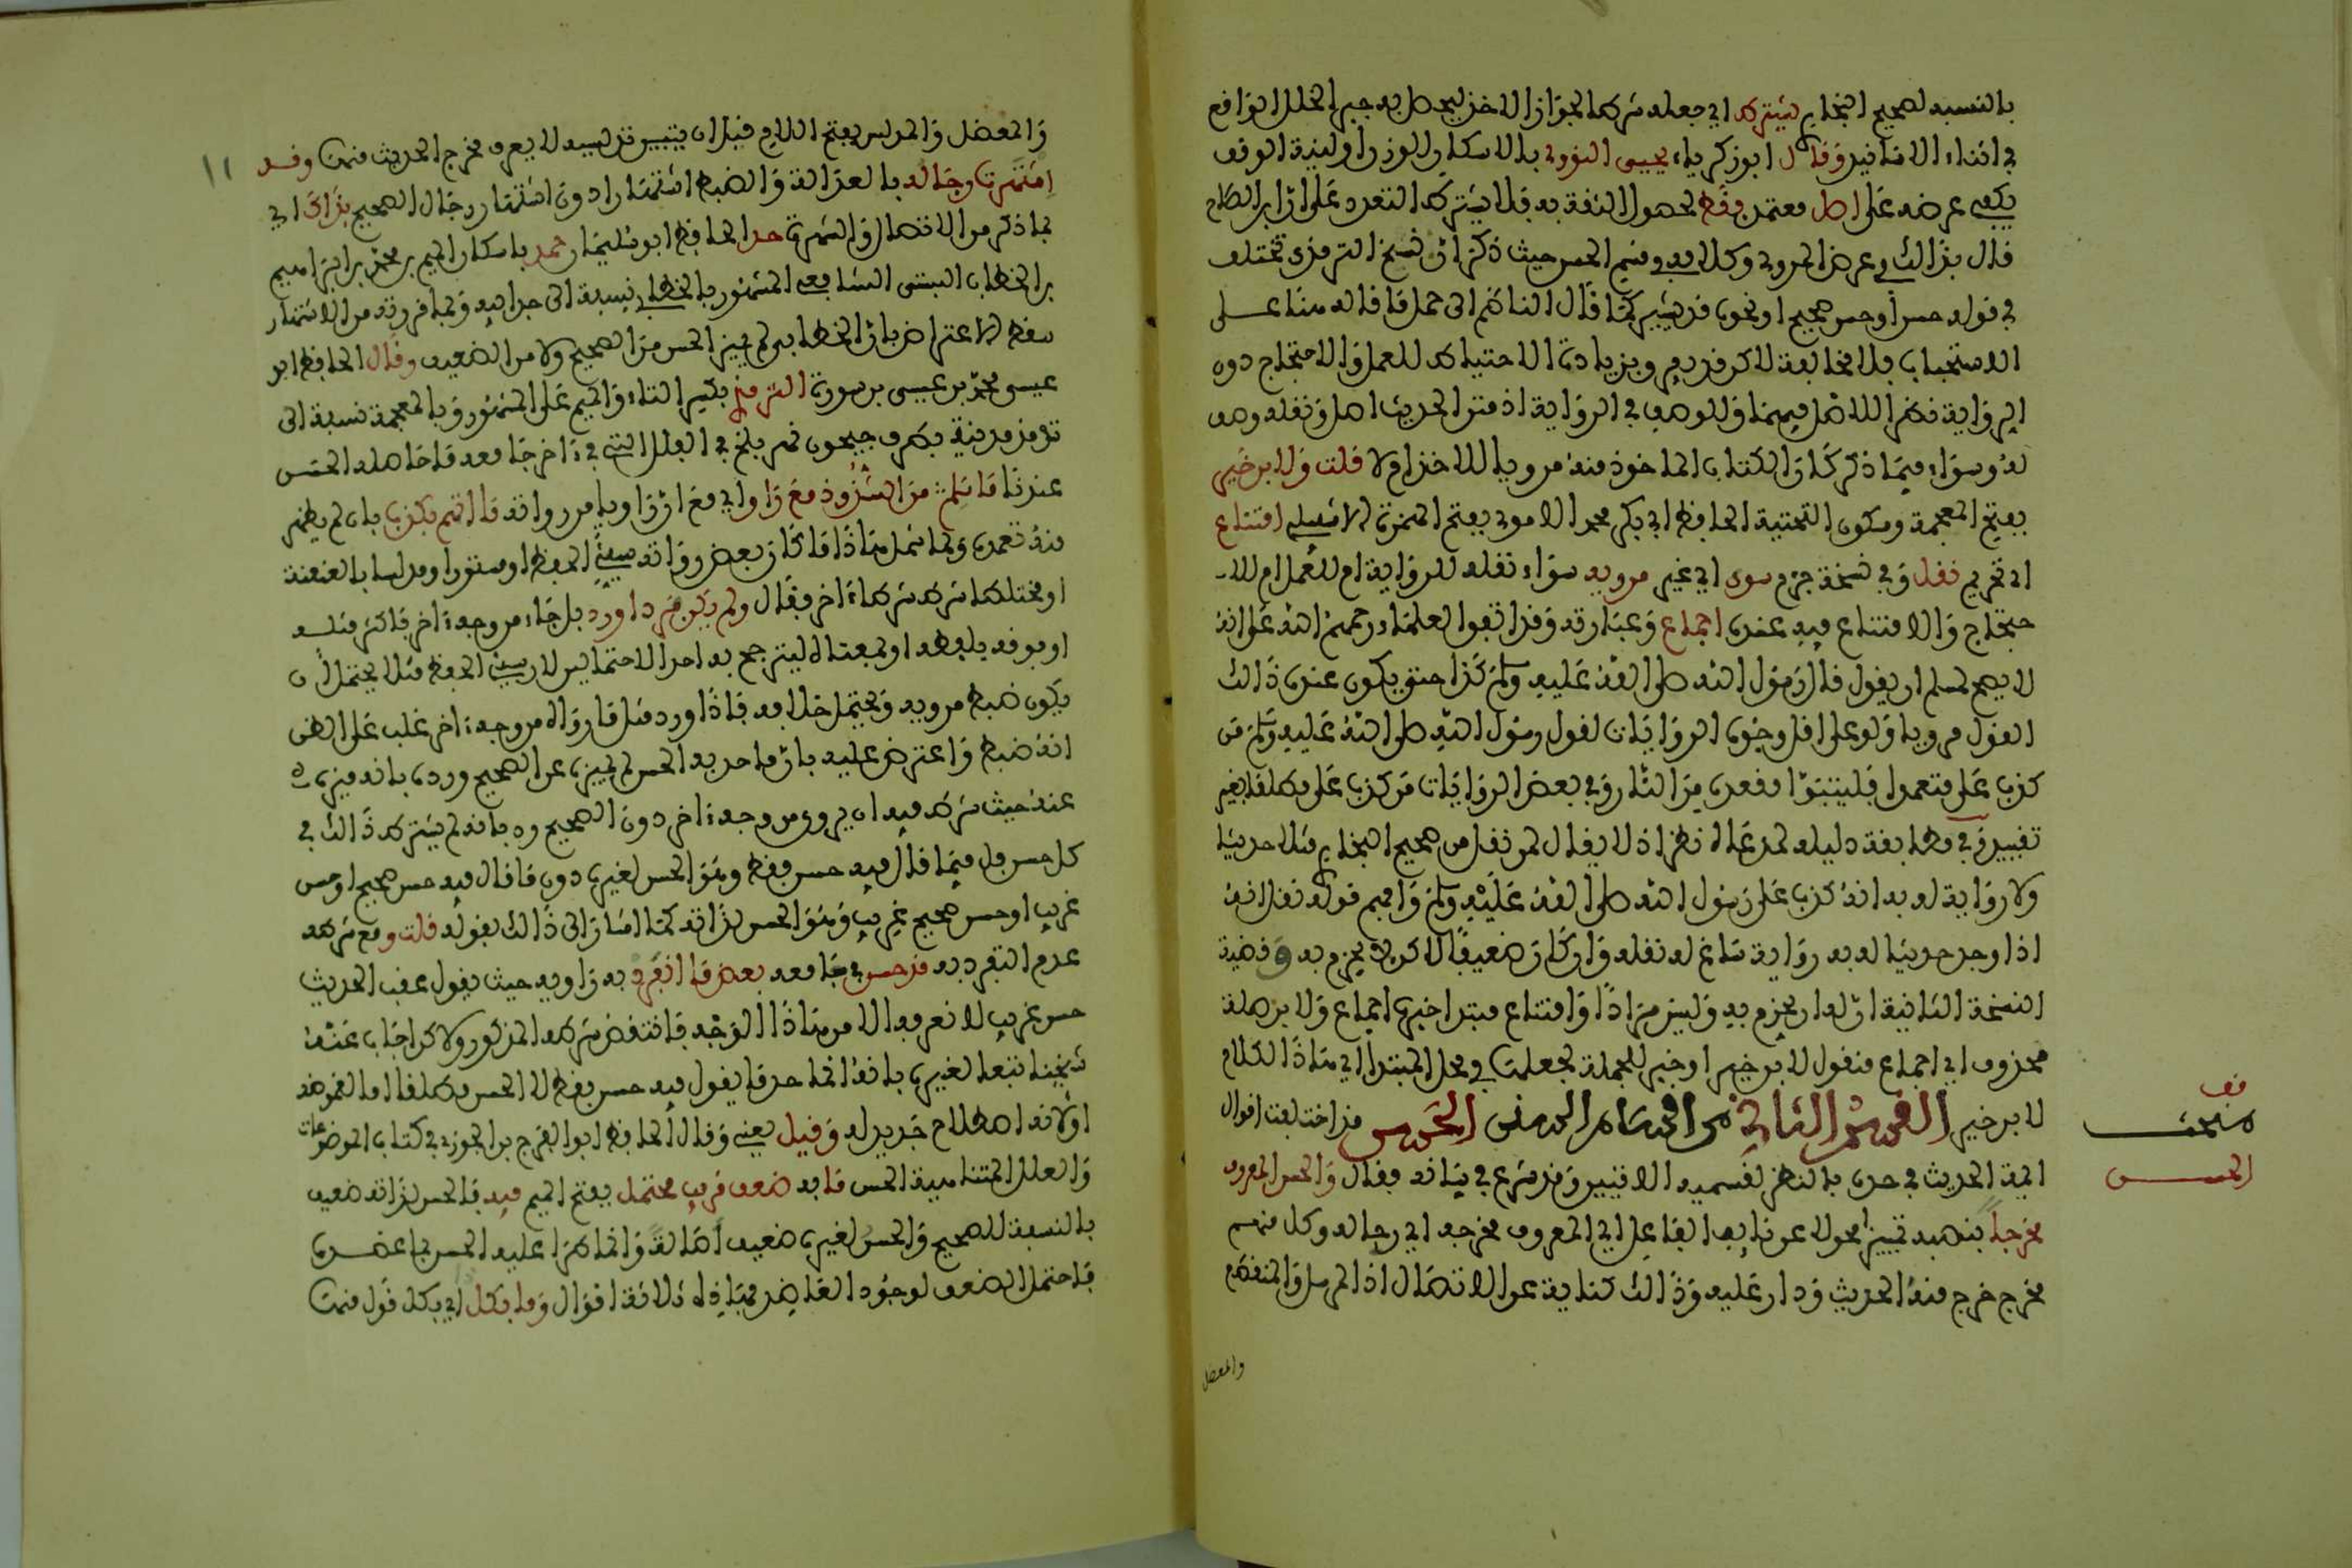 بالنسبة لصحيح البخاري يشترط اي جعله شرطا لجواز الاخذ ليحصل به جبر الخلل الواقع
في اثناء الاسانيد وقال ابو زكرياء يحيى النووي بالاسكان للوزن او لنية الوقف
يكفي عرضه على اصل معتمد فقط لحصول الثقة به فلا يشترط التعدد على ان ابن الصلاح
قال بذالك في عرض المروي وكلامه في قسم الحسن حيث ذكر ان نسخ الترمذي تختلف
في قوله حسن او حسن صحيح او نحوه قد يشير كما قال الناظم الى حمل ما قاله هنا على
الاستحباب فلا مخالفة لاكن قد يعم وبزيادة الاحتياط للعمل والاحتجاج دون
الرواية نظر الاصل فيهما وللوصف في الرواية اذ متن الحديث اصل ونقله وصف
له وسواء فيما ذكر كان الكتاب الماخوذ منه مرويا للاخذ ام لا قلت ولابن خير
بفتح المعجمة وسكون التحتية الحافظ ابي بكر محمد الاموي بفتح الهمزة الاشبيلي امتناع
اي تحريم نقل وفي نسخة جزم سوى اي غير مرويه سواء نقله للرواية ام للعمل ام للا
حتجاج والامتناع فيه عنده اجماع وعبارته وقد اتفق العلماء رحمهم الله على انه
لا يصح لمسلم ان يقول قال رسول الله صلى الله عليه وسلم كذا حتى يكون عنده ذالك
القول مرويا ولو على اقل وجوه الروايات لقول رسول الله صلى الله عليه وسلم من
كذب علي متعمدا فليتبوا مقعده من النار وفي بعض الروايات من كذب علي مطلقا بغير
تقييد وفي مطابقة دليله لمدعاه نظر اذ لا يقال لمن نقل من صحيح البخاري مثلا حديثا
ولا رواية له به انه كذب على رسول الله صلى الله عليه وسلم وافهم قوله نقل انه
اذا وجد حديثا له به رواية ساغ له نقله وان كان ضعيفا لاكن لا يجزم به وقضية
النسخة الثانية ان له ان يجزم به وليس مرادا وامتناع مبتدا خبره اجماع ولابن صلة
محذوف اي اجماع منقول لابن خير او خبر للجملة لجعلت في محل المبتدا اي هاذا الكلام
لابن خير القسم الثاني من اقسام السنن الحسن قد اختلفت اقوال
ايمة الحديث في حده بالنظر لقسميه الاتيين وقد شرع في بيانه فقال والحسن المعروف
مخرجا بنصبه تمييزا محولا عن نايب الفاعل اي المعروف مخرجه اي رجاله وكل منهم
مخرج خرج منه الحديث ودار عليه وذالك كناية عن الاتصال اذ المرسل والمنقطع
والمعضل
قف
مبحث
الحسن
١١
والمعضل والمدلس بفتح اللام قبل ان يتبين تدليسه لا يعرف مخرج الحديث منها وقد
اشتهرت رجاله بالعدالة والضبط اشتهارا دون اشتهار رجال الصحيح بذاك اي
بما ذكر من الاتصال والشهرة حد الحافظ ابو سليمان حمد باسكان الميم بن محمد بن ابراهيم
بن الخطاب البستي الشافعي المشهور بالخطابي نسبة الى جد ابيه وبما قررته من الاشتهار
سقط الاعتراض بان الخطابي لم يميز الحسن من الصحيح ولا من الضعيف وقال الحافظ ابو
عيسى محمد بن عيسى بن سورة الترمذي بكسر التاء والميم على المشهور وبالمعجمة نسبة الى
ترمذ مدينة بطرف جيحون نهر بلخ في العلل التي في ءاخر جامعه ما حاصله الحسن
عندنا ما سلم من الشذوذ مع راو اي مع ان راويا من رواته ما اتهم بكذب بان لم يظهر
منه تعمده ولما شمل هاذا ما كان بعض رواته سيئ الحفظ او مستورا او مدلسا بالعنعنة
او مختلطا شرط شرطا ءاخر فقال ولم يكن فردا ورد بل جاء من وجه ءاخر فاكثر مثله
او فوقه بلفظه او بمعناه ليترجح به احد الاحتمالين لان سيئ الحفظ مثلا يحتمل ان
يكون ضبط مرويه ويحتمل خلافه فاذا ورد مثل ما رواه من وجه ءاخر غلب على الظن
انه ضبط واعترض عليه بان ما حد به الحسن لم يميزه عن الصحيح ورده بانه ميزه
عنه حيث شرط فيه ان يروى من وجه ءاخر دون الصحيح وبانه لم يشترط ذالك في
كل حسن بل فيما قال فيه حسن فقط وهو الحسن لغيره دون ما قال فيه حسن صحيح او حسن
غريب او حسن صحيح غريب وهو الحسن لذاته كما اشار الى ذالك بقوله قلت ومع شرطه
عدم التفرد به قد حسن في جامعه بعض ما انفرد به راويه حيث يقول عقب الحديث
حسن غريب لا نعرفه الا من هاذا الوجه فانتقض شرطه المذكور ولاكن اجاب عنه
شيخنا تبعا لغيره بانه انما حد ما يقول فيه حسن فقط لا الحسن مطلقا اما لغموضه
او لانه اصطلاح جديد له وقيل يعني وقال الحافظ ابو الفرج بن الجوزي في كتاب الموضوعات
والعلل المتناهية الحسن ما به ضعف قريب محتمل بفتح الميم فيه فالحسن لذاته ضعيف
بالنسبة للصحيح والحسن لغيره ضعيف اصالة وانما طرا عليه الحسن بما عضده
فاحتمل الضعف لوجود العاضد فهاذه ثلاثة اقوال وما بكل اي بكل قول منها